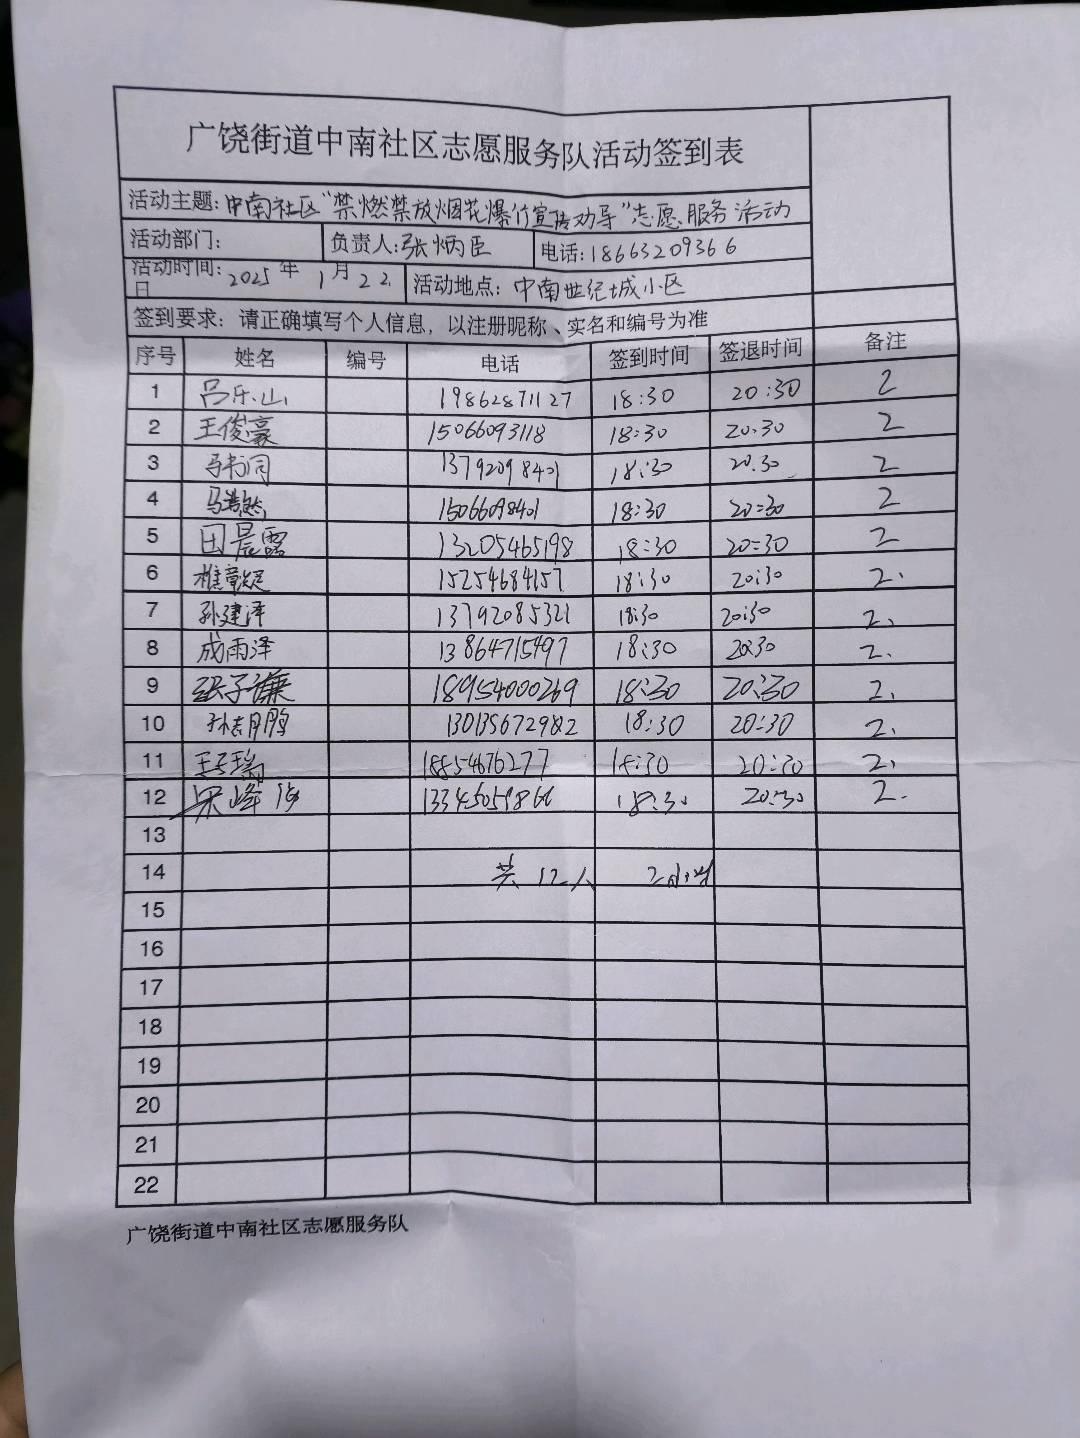 广饶街道中南社区志愿服务队活动签到表
活动主题:中南社区“禁燃禁放烟花爆竹宣传劝导”志愿服务活动
活动部门: 负责人:张炳臣 电话:18663209366
活动时间: 2025年1月22日 活动地点: 中南世纪城小区
签到要求: 请正确填写个人信息，以注册昵称、实名和编号为准
序号 姓名 编号 电话 签到时间 签退时间 备注
1 吕乐山 19862871127 18:30 20:30 2
2 王俊豪 15066093118 18:30 20:30 2
3 马书同 13792098401 18:30 20:30 2
4 马浩然 15066098401 18:30 20:30 2
5 田晨露 13205465198 18:30 20:30 2
6 15254684157 18:30 20:30 2.
7 孙建泽 13792085321 18:30 20:30 2.
8 成雨泽 13864715497 18:30 20:30 2.
9 张子谦 18954000269 18:30 20:30 2.
10 孙志鹏 18:30 20:30 2.
11 王子瑞 18854676277 18:30 20:30 2.
12 18:30 20:30 2.
13
14 共12人 2小时
15
16
17
18
19
20
21
22
广饶街道中南社区志愿服务队